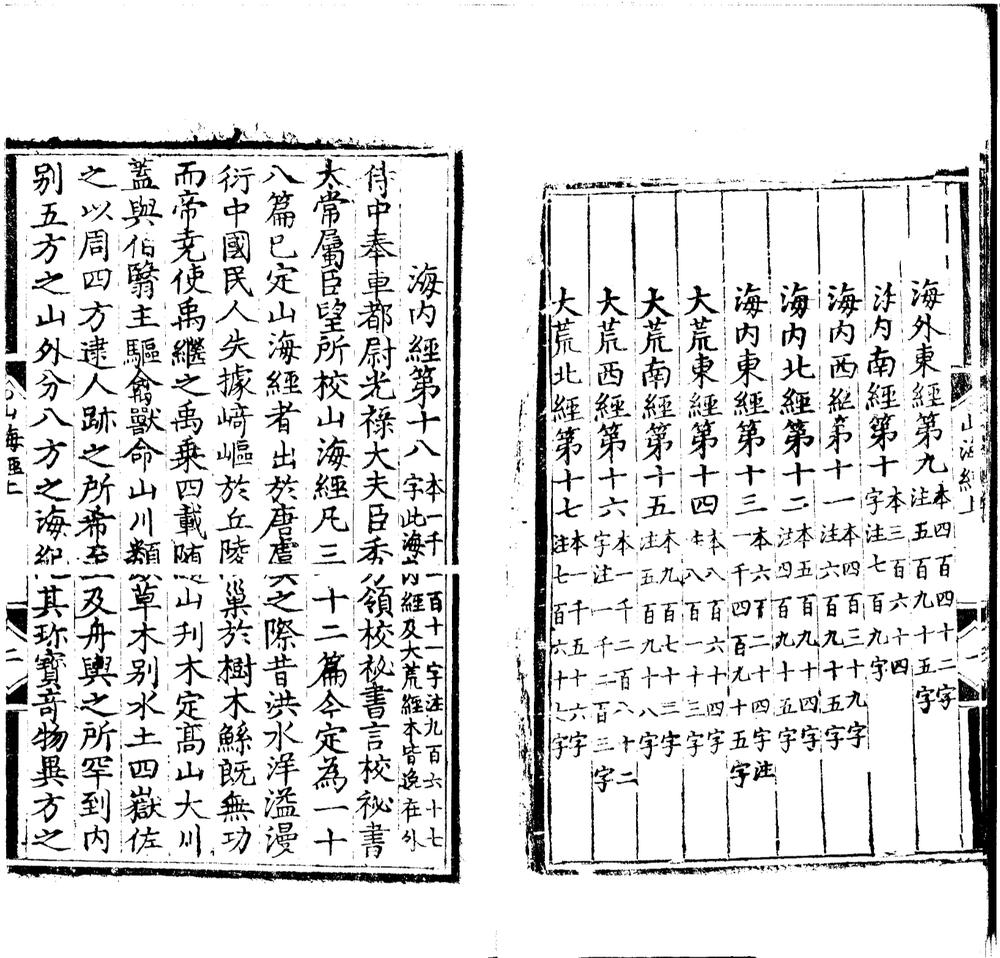 海外東經第九本四百四十二字注五百九十五字
海内南經第十本三百六十四字注七百九字
海内西經第十一本四百三十九字注六百九十五字
海内北經第十二本五百九十四字注四百九十五字
海内東經第十三本六百二十四字注一千四百九十五字
大荒東經第十四本八百六十四字八百一十三字
大荒南經第十五本九百七十二字注五百九十八字
大荒西經第十六本一千二百八十二字注一千二百三字
大荒北經第十七本一千五十六字注七百六十字
山海經上
一
海内經第十八本一千一百十一字注九百六十七字此海内經及大荒經本皆逸在外
侍中奉車都尉光祿大夫臣秀領校祕書言校祕書
太常屬臣望所校山海經凡三十二篇今定為一十
八篇已定山海經者出於唐虞之際昔洪水洋溢漫
衍中國民人失據崎嶇於丘陵巢於樹木鯀既無功
而帝堯使禹繼之禹乗四載随山刋木定髙山大川
蓋與伯翳主驅禽獸命山川類草木别水土四嶽佐
之以周四方逮人跡之所希至及舟輿之所罕到内
别五方之山外分八方之海紀其珎寶竒物異方之
山海經上
二